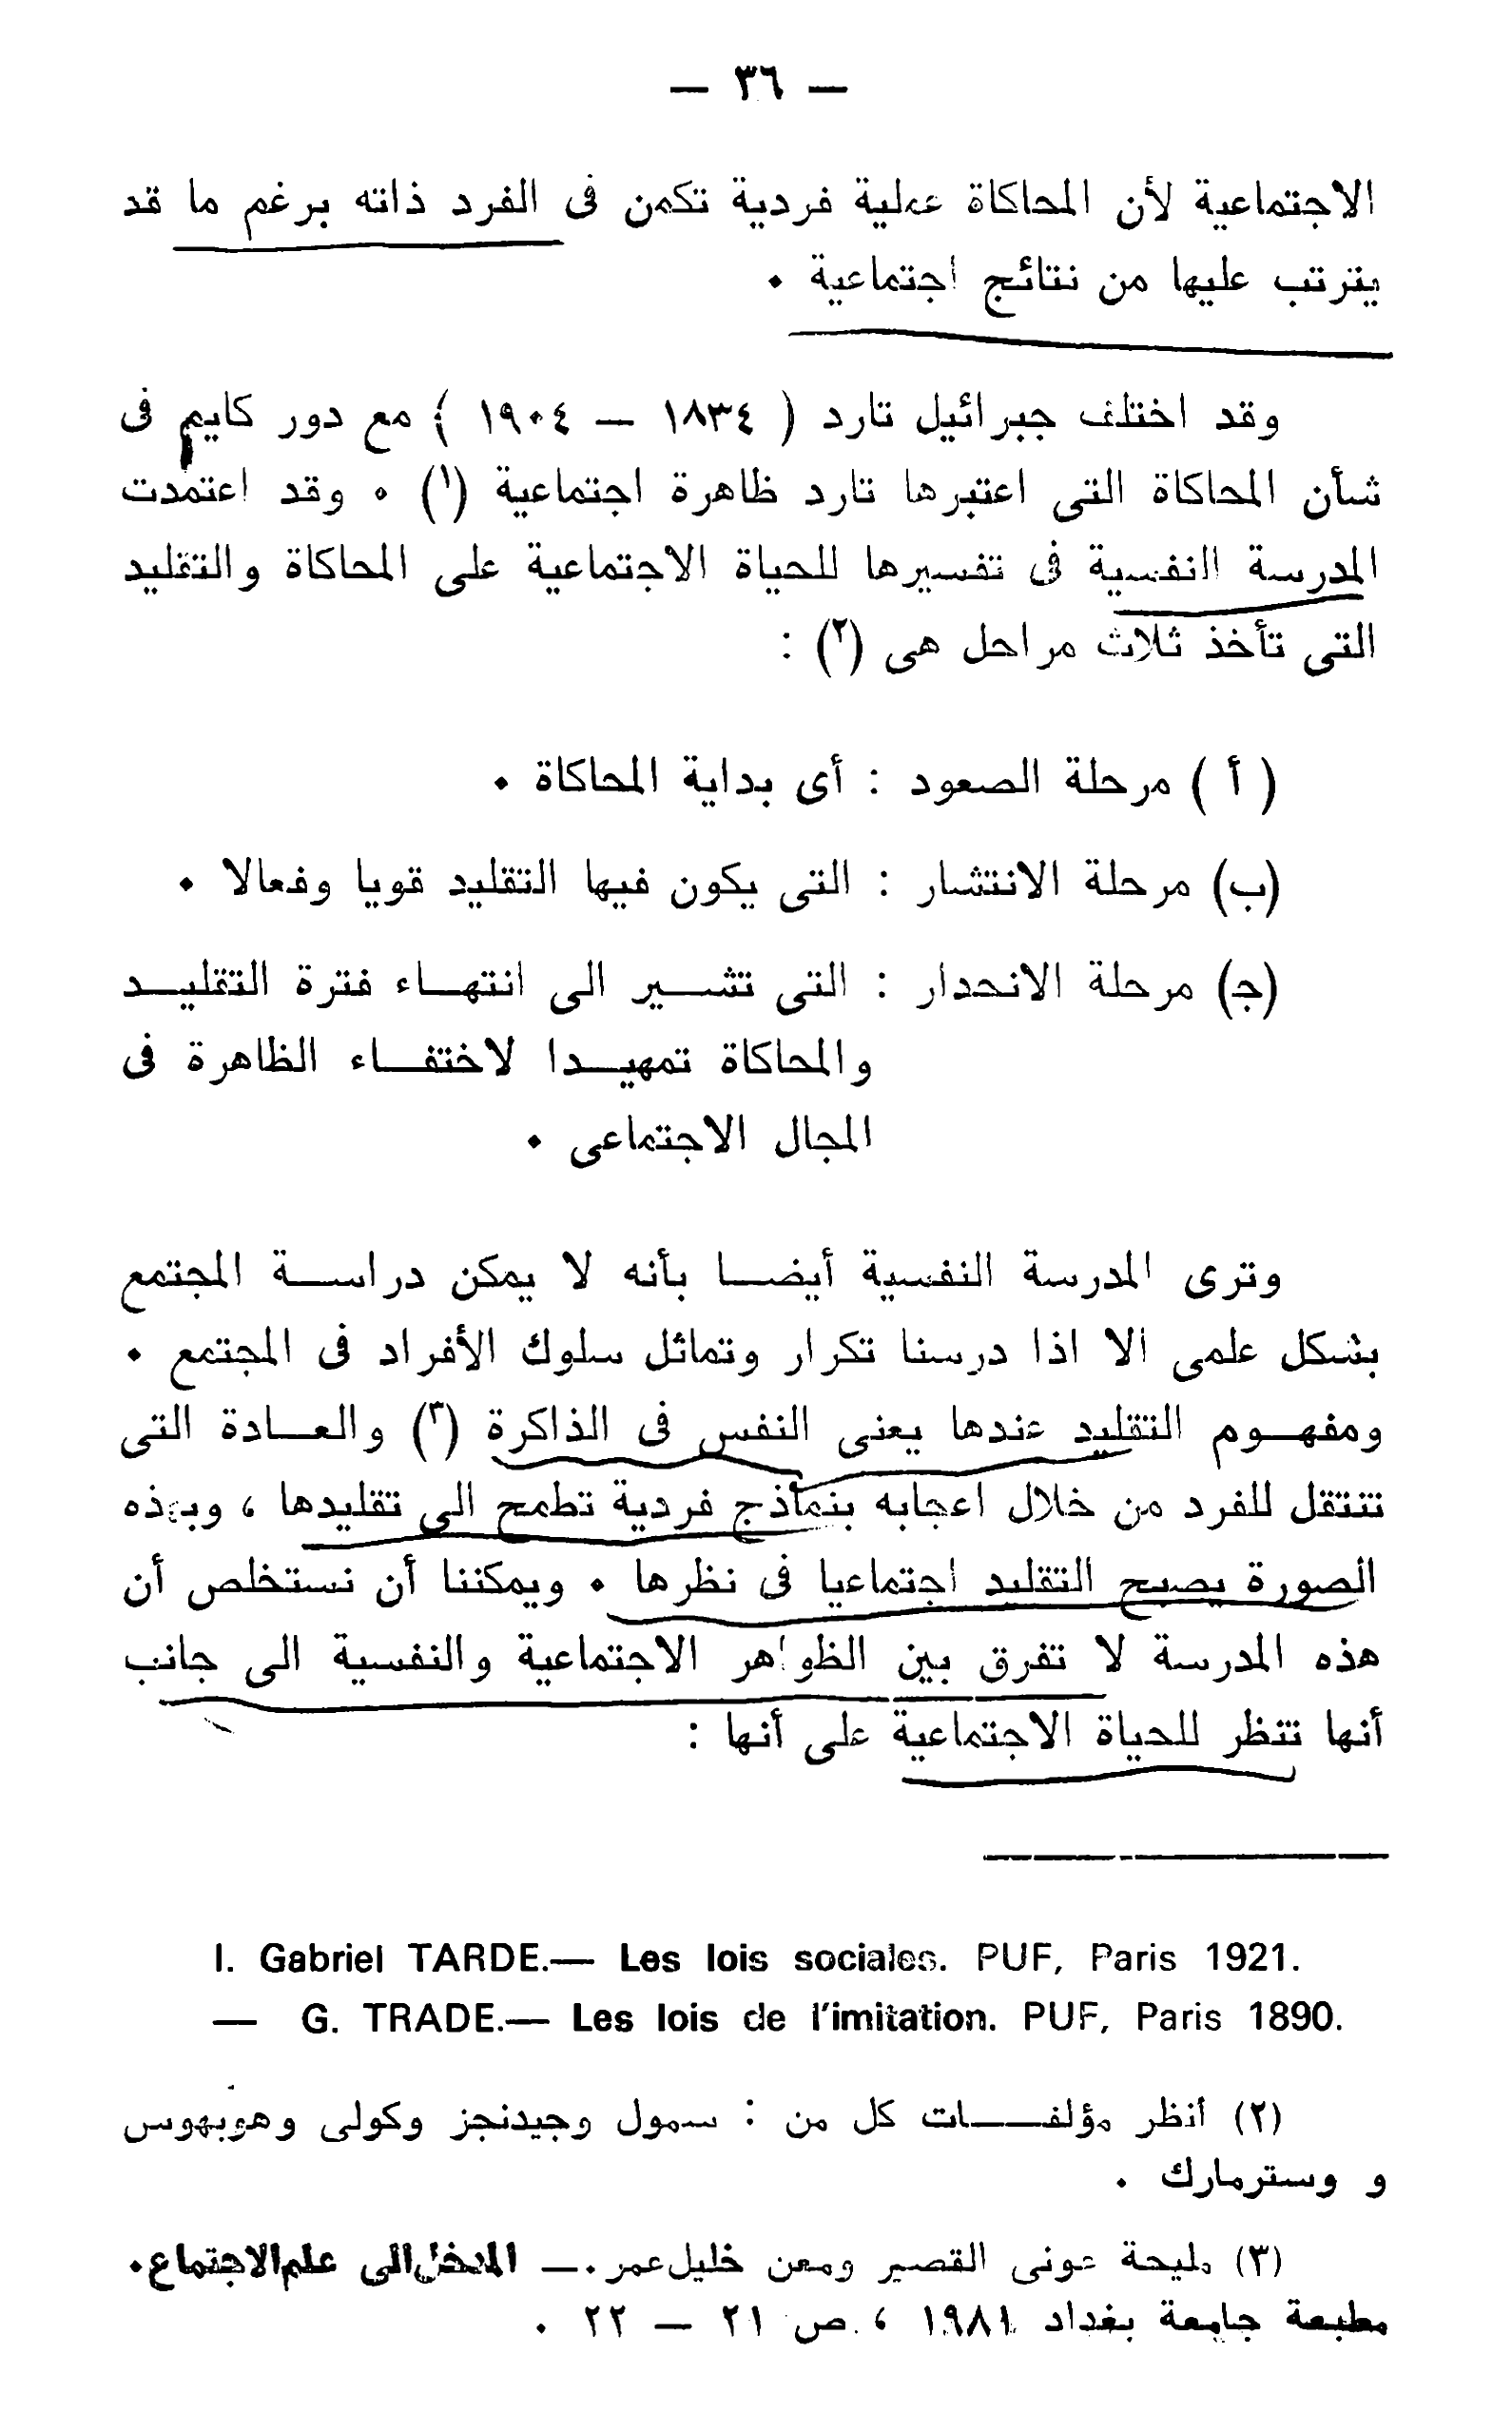 — ٣٦ —
الاجتماعية لأن المحاكاة عملية فردية تكمن فى الفرد ذاته برغم ما قد
يترتب عليها من نتائج اجتماعية ٠
وقد اختلف جبرائيل تارد ( ١٨٣٤ — ١٩٠٤ ) مع دور كايم فى
شأن المحاكاة التى اعتبرها تارد ظاهرة اجتماعية (١) ٠ وقد اعتمدت
المدرسة النفسية فى تفسيرها للحياة الاجتماعية على المحاكاة والتقليد
التى تأخذ ثلاث مراحل هى (٢) :
( أ ) مرحلة الصعود : أى بداية المحاكاة ٠
(ب) مرحلة الانتشار : التى يكون فيها التقليد قويا وفعالا ٠
(ج) مرحلة الانحدار : التى تشـــير الى انتهـاء فترة التقليـد
والمحاكاة تمهيـدا لاختفـاء الظاهرة فى
المجال الاجتماعى ٠
وترى المدرسة النفسية أيضـا بأنه لا يمكن دراسـة المجتمع
بشكل علمى الا اذا درسنا تكرار وتماثل سلوك الأفراد فى المجتمع ٠
ومفهـوم التقليد عندها يعنى النفس فى الذاكرة (٣) والعـادة التى
تنتقل للفرد من خلال اعجابه بنماذج فردية تطمح الى تقليدها ، وبهذه
الصورة يصبح التقليد اجتماعيا فى نظرها ٠ ويمكننا أن نستخلص أن
هذه المدرسة لا تفرق بين الظواهر الاجتماعية والنفسية الى جانب
أنها تنظر للحياة الاجتماعية على أنها :
I. Gabriel TARDE.— Les lois sociales. PUF, Paris 1921.
— G. TRADE.— Les lois de l'imitation. PUF, Paris 1890.
(٢) أنظر مؤلفـــات كل من : سمول وجيدنجز وكولى وهوبهوس
و وسترمارك ٠
(٣) مليحة عونى القصير ومعن خليل عمر ٠— المدخل الى علم الاجتماع٠
مطبعة جامعة بغداد ١٩٨١ ، ص ٢١ — ٢٢ ٠